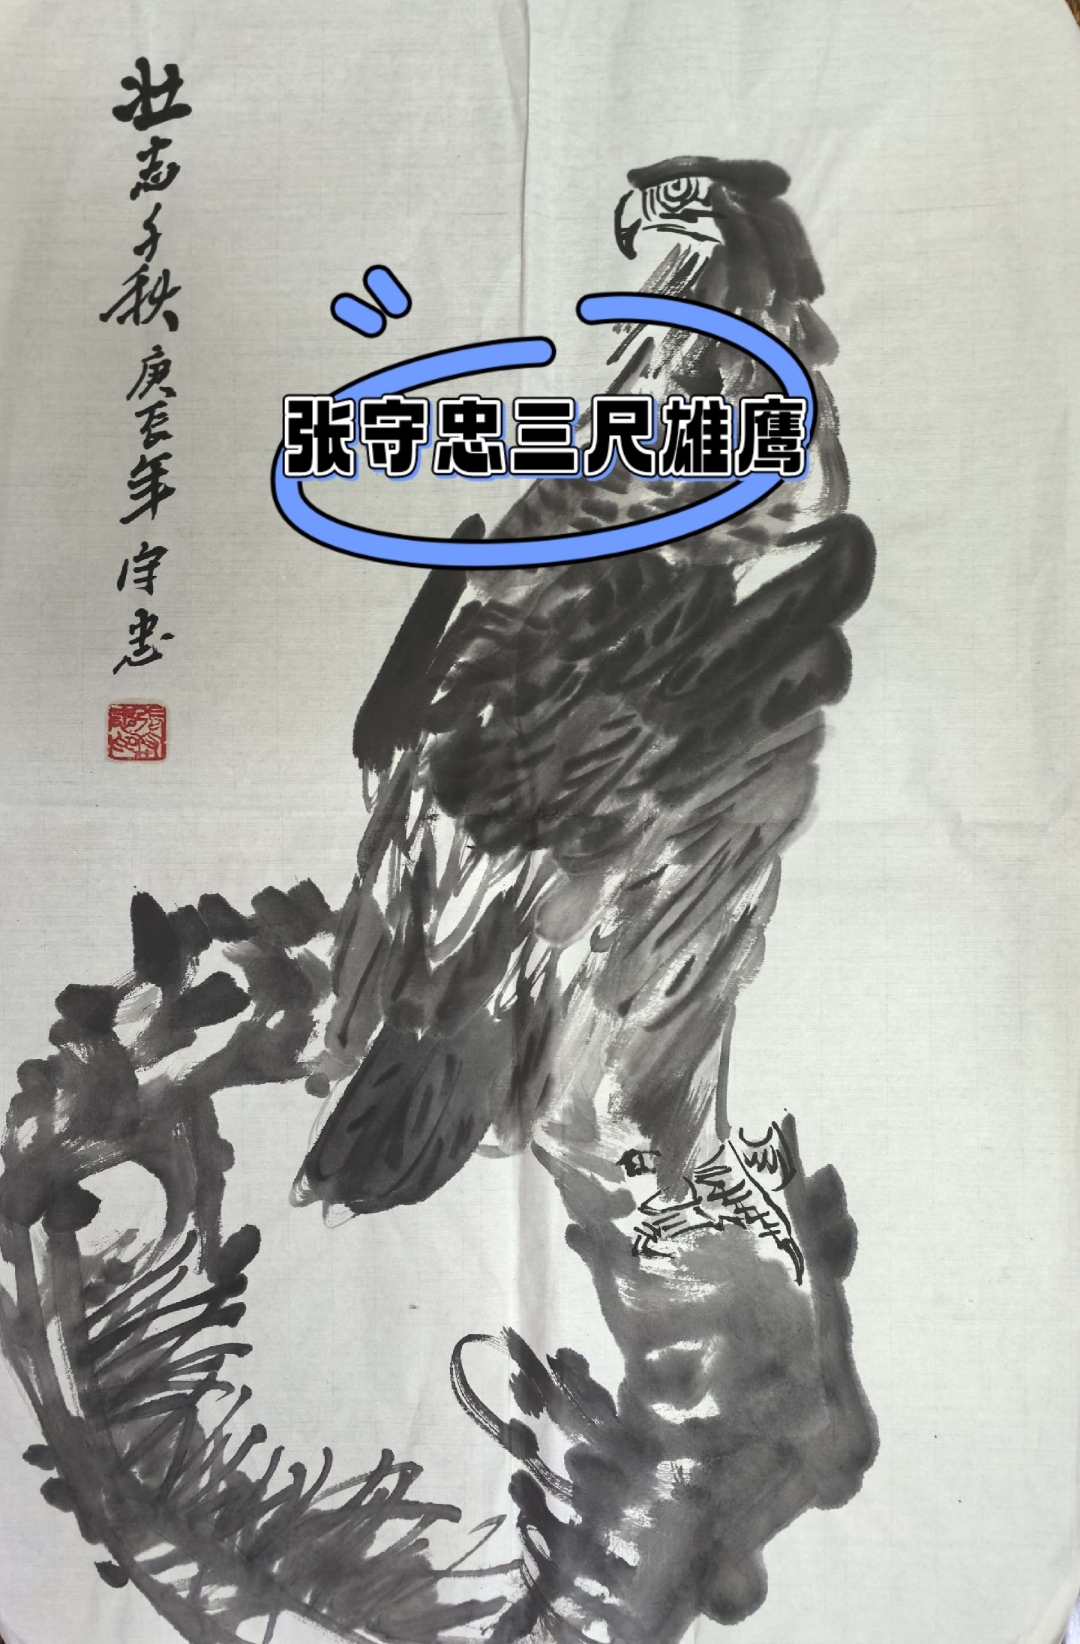 壮志千秋庚辰年守忠
张守忠三尺雄鹰